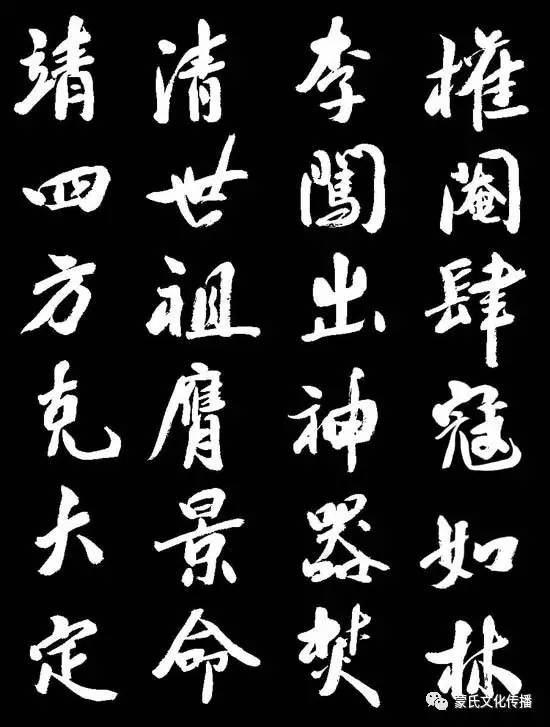 權閹肆寇如林
李闖出神器焚
清世祖膺景命
靖四方克大定
蒙氏文化传播